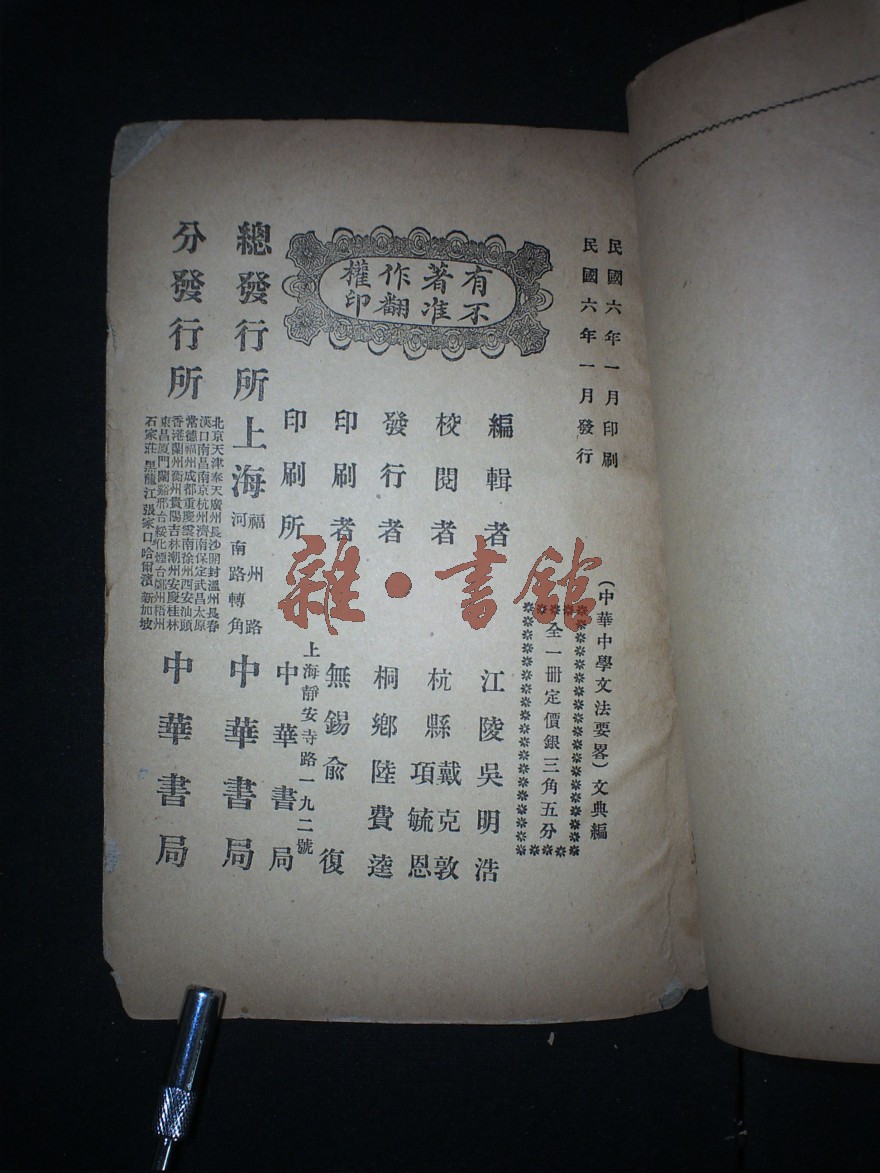 民國六年一月印刷
民國六年一月發行
(中華中學文法要畧)文典編
全一冊定價銀三角五分
有著作權
不准翻印
編輯者 江陵吳明浩
校閱者 杭縣戴克敦 項毓恩
發行者 桐鄉陸費逵
印刷者 無錫俞復
印刷所 上海靜安寺路一九二號 中華書局
總發行所 上海福州路河南路轉角 中華書局
分發行所 中華書局
北京天津奉天廣州長沙開封溫州長春
漢口南昌南京杭州濟南保定武昌太原
常德福州成都重慶雲南徐州西安汕頭
香港蘭州衢州貴陽吉林潮州安慶桂林
東昌廈門蘭谿邢台綏化煙台鄭州梧州
石家莊黑龍江張家口哈爾濱新加坡
雜·書館